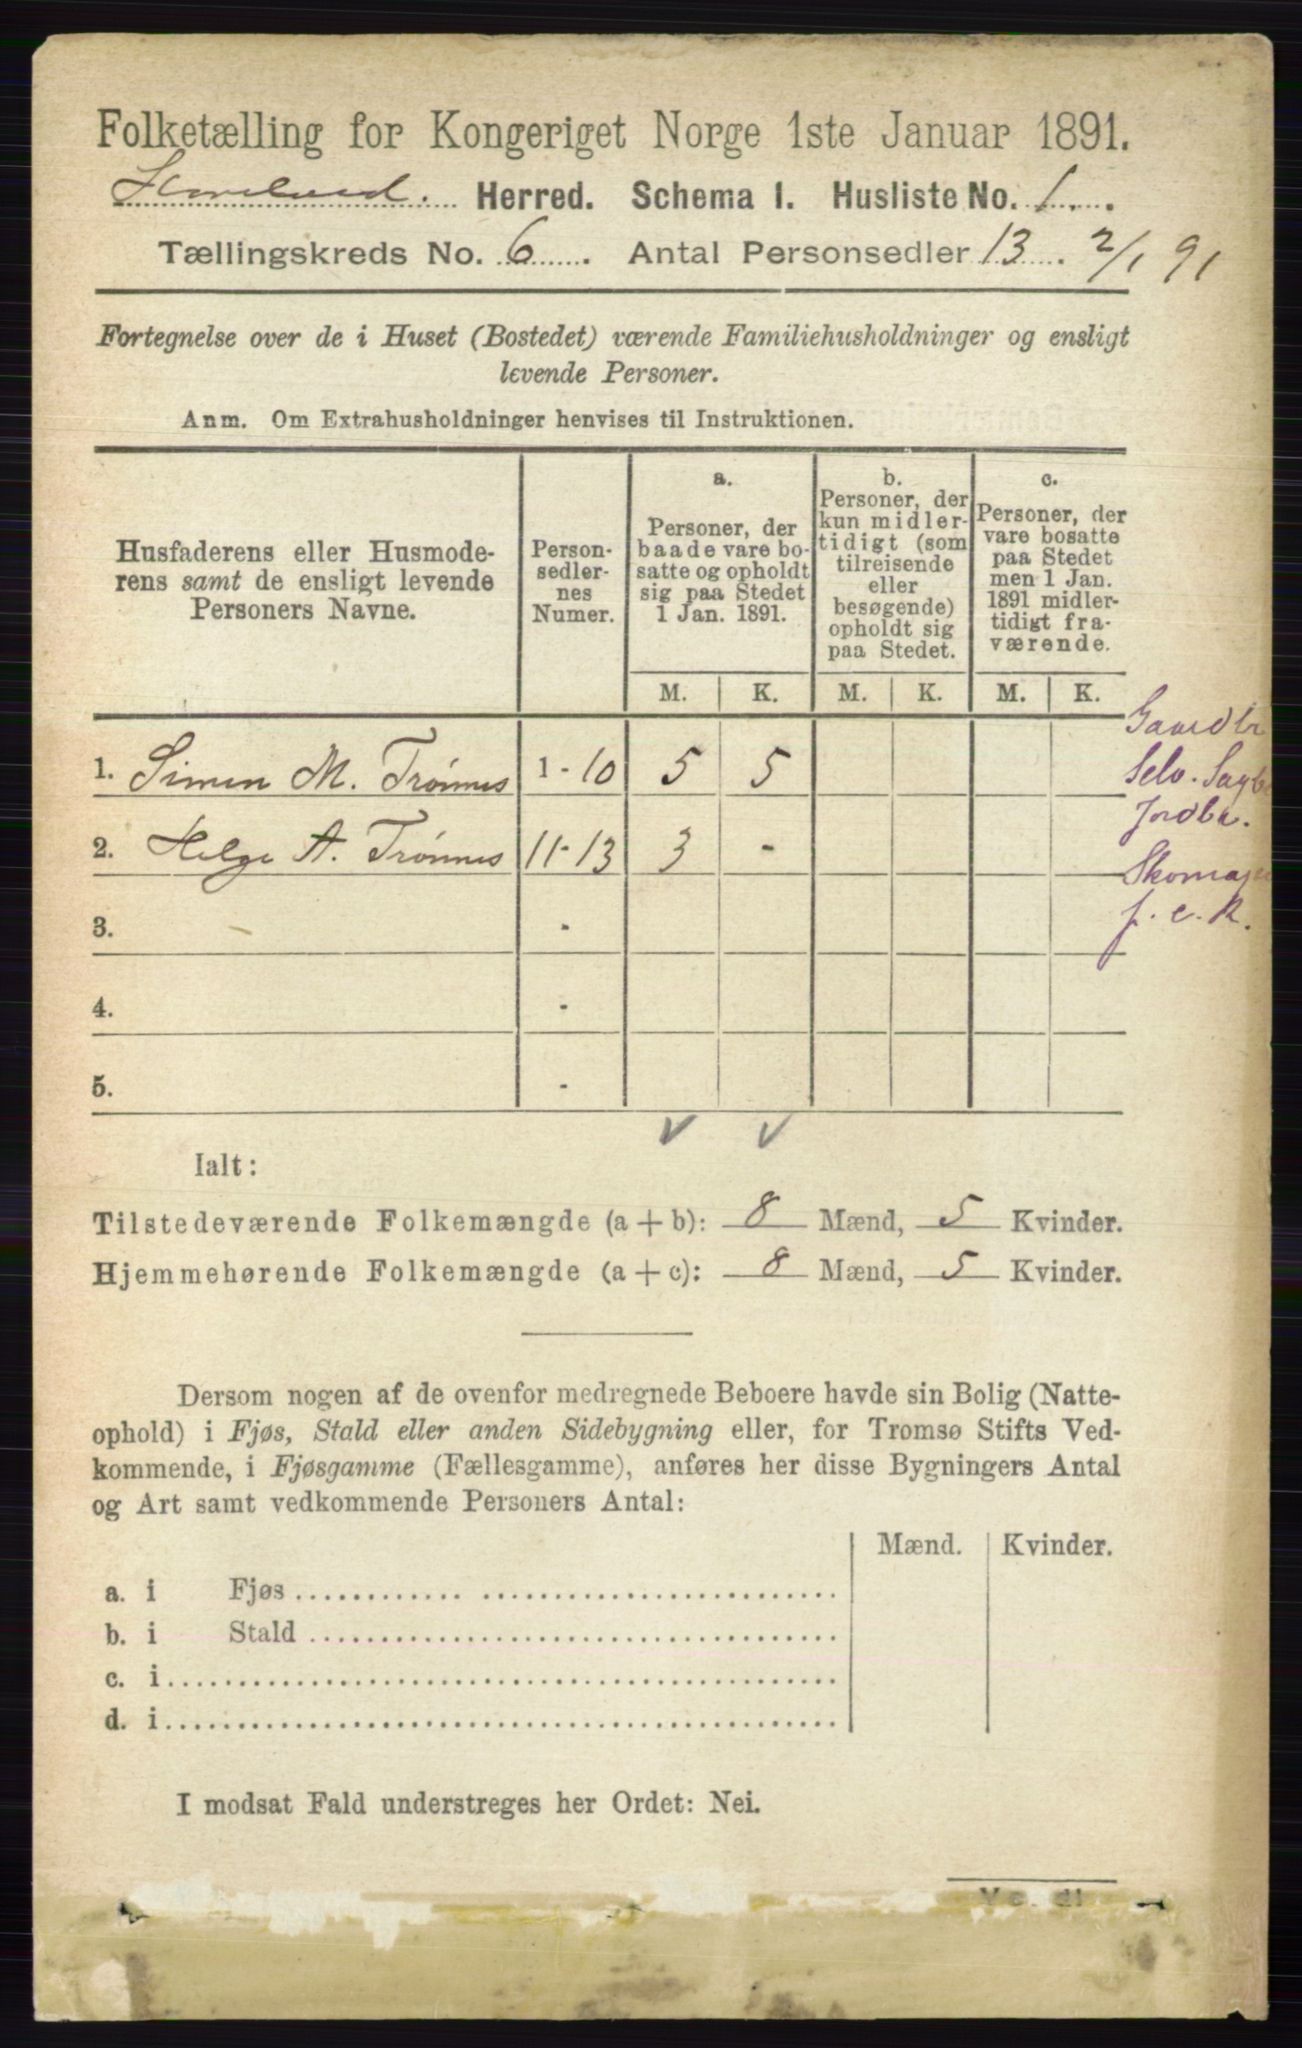 Folketælling for Kongeriget Norge 1ste Januar 1891.
Herred. Schema 1. Husliste No. 1.
Tællingskreds No. 6. Antal Personsedler 13. 2/1 91
Fortegnelse over de i Huset (Bostedet) værende Familiehusholdninger og ensligt
levende Personer.
Anm. Om Extrahusholdninger henvises til Instruktionen.
Husfaderens eller Husmode-
rens samt de ensligt levende
Personers Navne.
Person-
sedler-
nes
Numer.
a.
Personer, der
baade vare bo-
satte og opholdt
sig paa Stedet
1 Jan. 1891.
b.
Personer, der
kun midler-
tidigt (som
tilreisende
eller
besøgende)
opholdt sig
paa Stedet.
c.
Personer, der
vare bosatte
paa Stedet
men 1 Jan.
1891 midler-
tidigt fra-
værende.
M. K. M. K. M. K.
Gaardbr
1. Simen M. Trønnes 1-10 5 5
Selv. Sagb
Jordbr.
2. Helge A. Trønnes 11-13 3 -
Skomager
f. e. R.
3. -
4. -
5. -
Ialt:
Tilstedeværende Folkemængde (a+b): 8 Mænd, 5 Kvinder.
Hjemmehørende Folkemængde (a+c): 8 Mænd, 5 Kvinder.
Dersom nogen af de ovenfor medregnede Beboere havde sin Bolig (Natte-
ophold) i Fjøs, Stald eller anden Sidebygning eller, for Tromsø Stifts Ved-
kommende, i Fjøsgamme (Fællesgamme), anføres her disse Bygningers Antal
og Art samt vedkommende Personers Antal:
Mænd. Kvinder.
a. i Fjøs
b. i Stald
c. i
d. i
I modsat Fald understreges her Ordet: Nei.